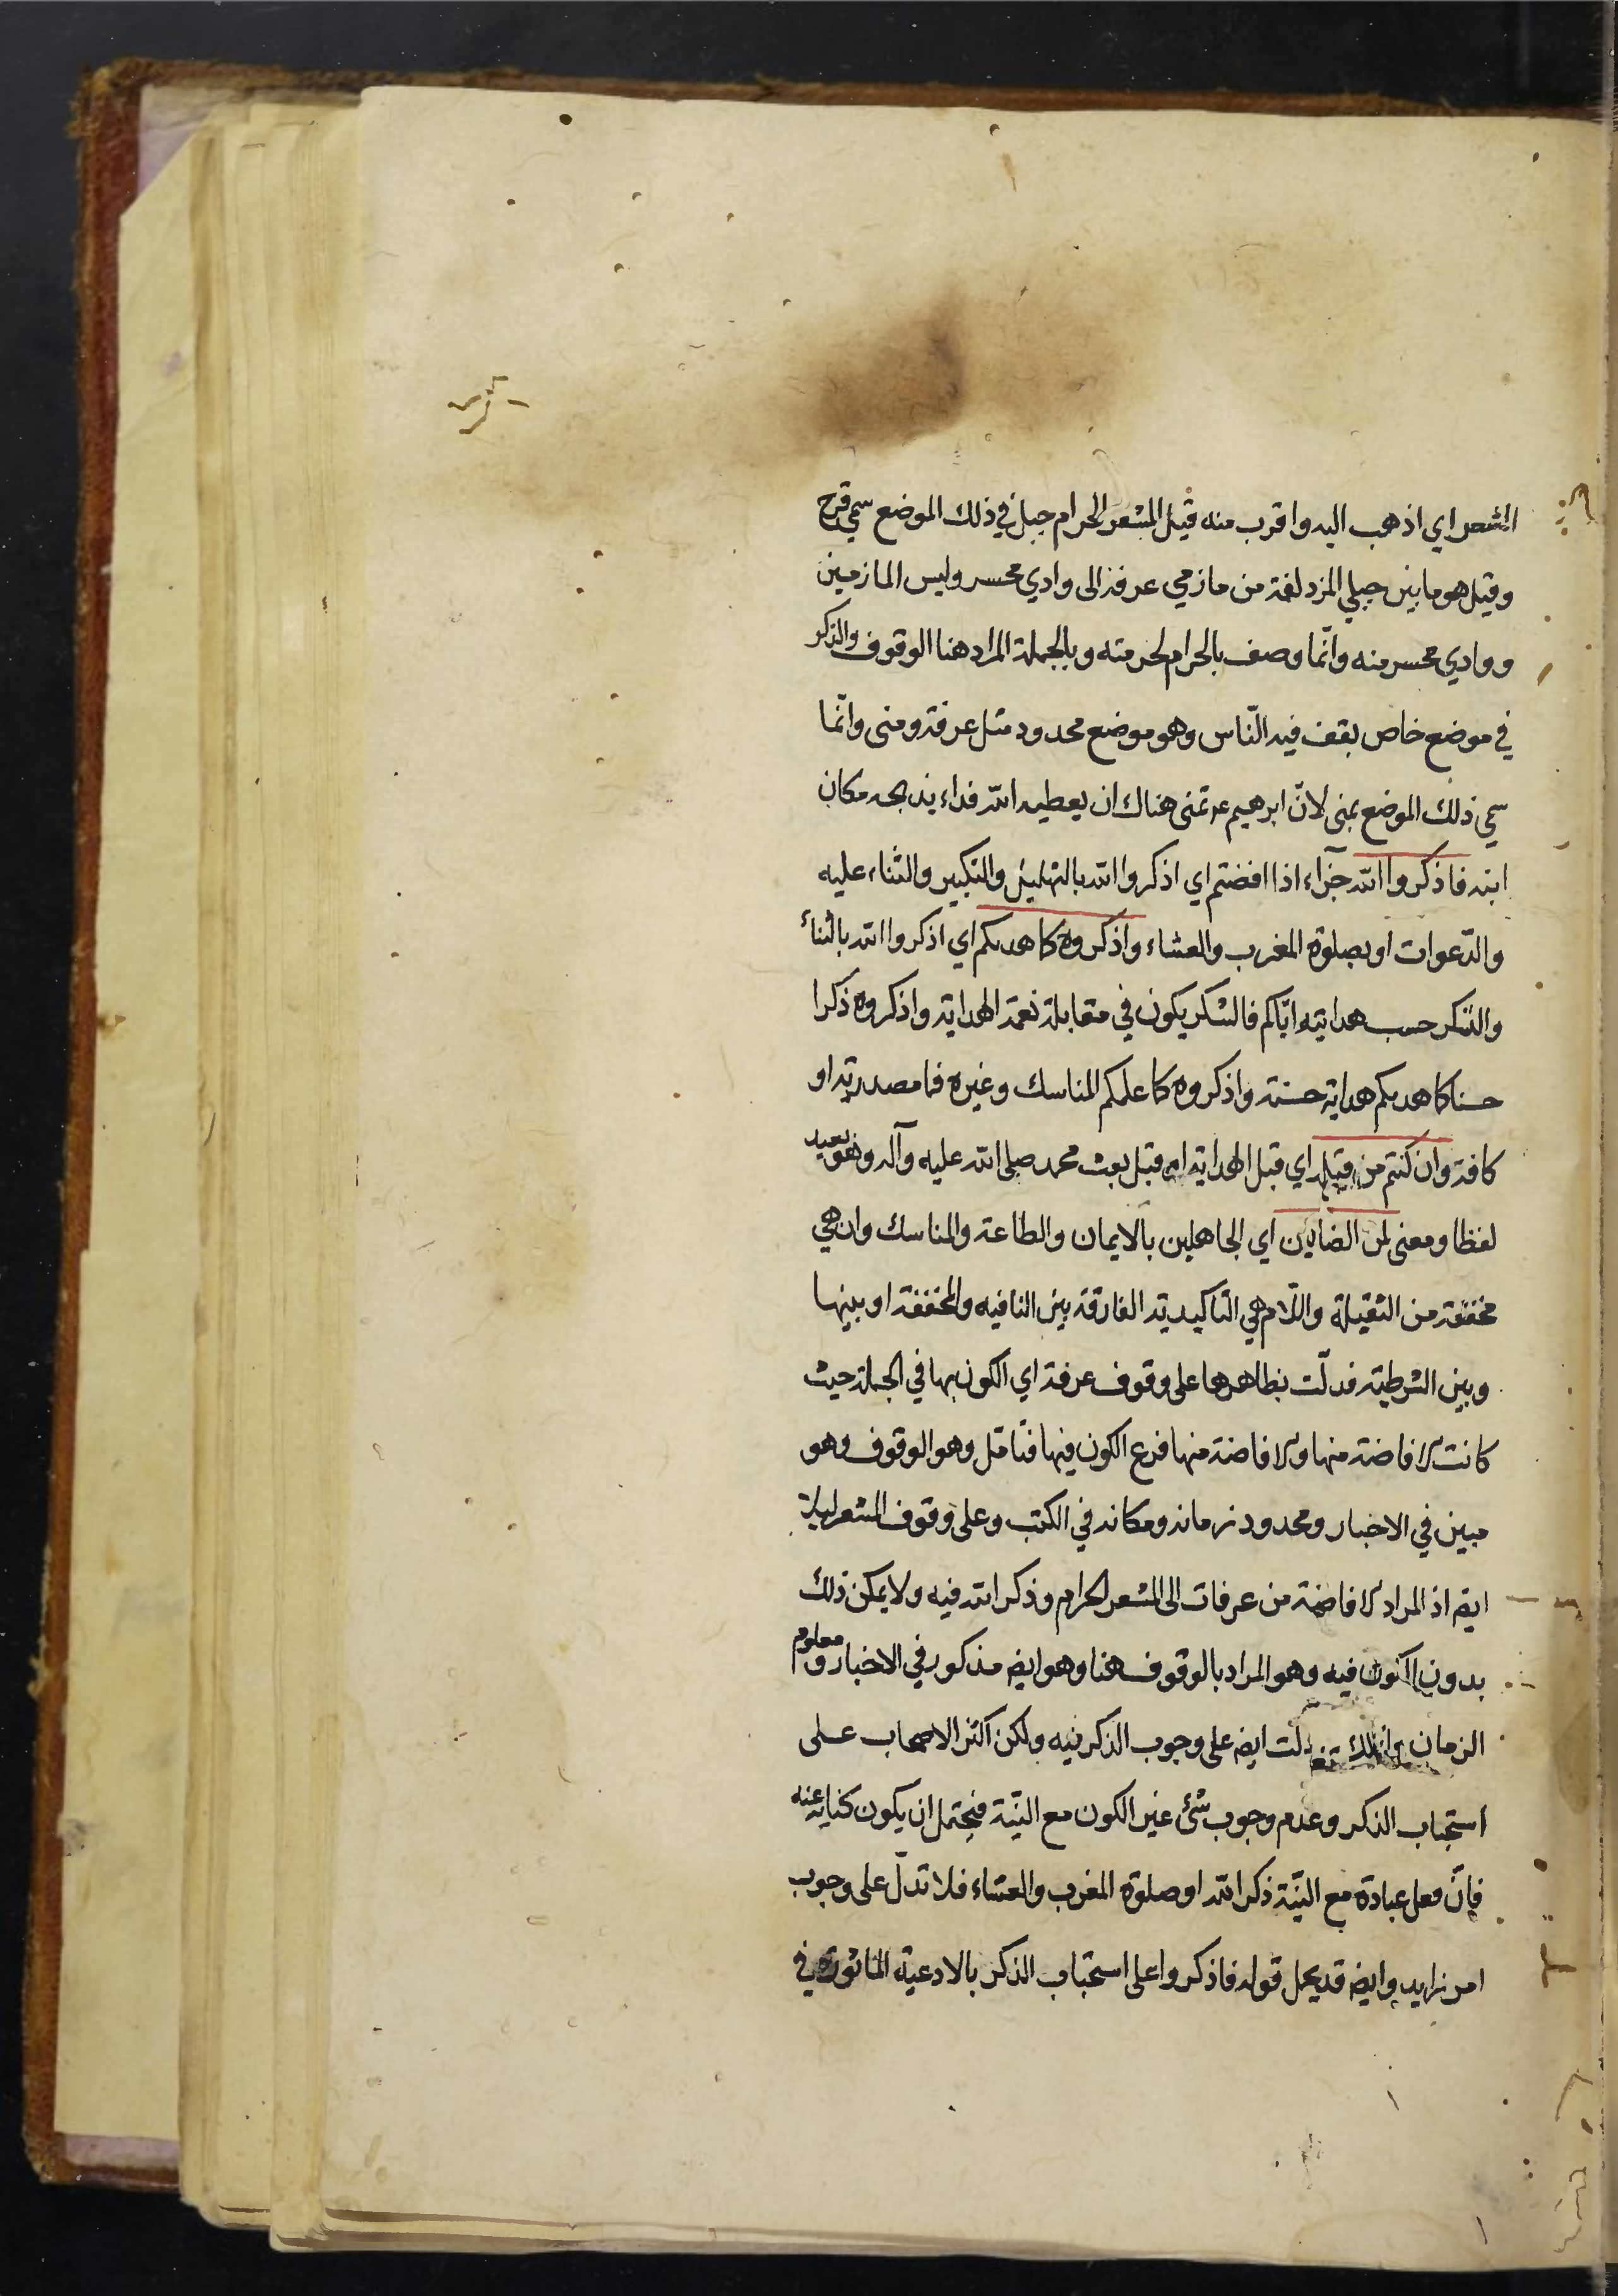 الشعر اي اذهب اليه واقرب منه قيل المشعر الحرام جبل في ذلك الموضع سمي قزح
وقيل هو ما بين جبلي المزدلفة من مازمي عرفة الى وادي محسر وليس المازمين
ووادي محسر منه وانّما وصف بالحرام لحرمته وبالجملة المراد هنا الوقوف والذكر
في موضع خاص يقف فيه النّاس وهو موضع محدود مثل عرفة ومنى وانّما
سمي ذلك الموضع بمنى لانّ ابرهيم ع تمنى هناك ان يعطيه الله فداء يذبحه مكان
ابنه فاذكروا الله جزآء اذا افضتم اي اذكروا الله بالتهليل والتكبير والثناء عليه
والدّعوات او بصلوة المغرب والعشاء واذكروه كما هديكم اي اذكروا الله بالثناء
والشكر حسب هدايته ايّاكم فالشكر يكون في مقابلة نعمة الهداية واذكروه ذكرا
حسنا كما هديكم هداية حسنة واذكروه كما علمكم المناسك وغيره فما مصدرية او
كافة وان كنتم من قبله اي قبل الهداية او قبل بعث محمد صلى الله عليه وآله وهو بعيد
لفظا ومعنى لمن الضالين اي الجاهلين بالايمان والطاعة والمناسك وان هي
مخففة من الثقيلة واللّام هي التاكيدية الفارقة بين النافيه والمخففة او بينها
وبين الشرطية فدلّت بظاهرها على وقوف عرفة اي الكون بها في الجملة حيث
كانت الافاضة منها والافاضة منها فرع الكون فيها فتامّل وهو الوقوف وهو
مبين في الاخبار ومحدود زمانه ومكانه في الكتب وعلى وقوف المشعر ليلة
ايض اذ المراد الافاضة من عرفات الى المشعر الحرام وذكر الله فيه ولا يمكن ذلك
بدون الكون فيه وهو المراد بالوقوف هنا وهو ايض مذكور في الاخبار ومعلوم
الزمان دلت ايض على وجوب الذكر فيه ولكن اكثر الاصحاب على
استحباب الذكر وعدم وجوب شئ غير الكون مع النيّة فيحتمل ان يكون كناية عنه
فانّ فعل عبادة مع النيّة ذكر الله او صلوة المغرب والعشاء فلا تدلّ على وجوب
امر زايد وايض قد يحمل قوله فاذكروا على استحباب الذكر بالادعية الماثورة في